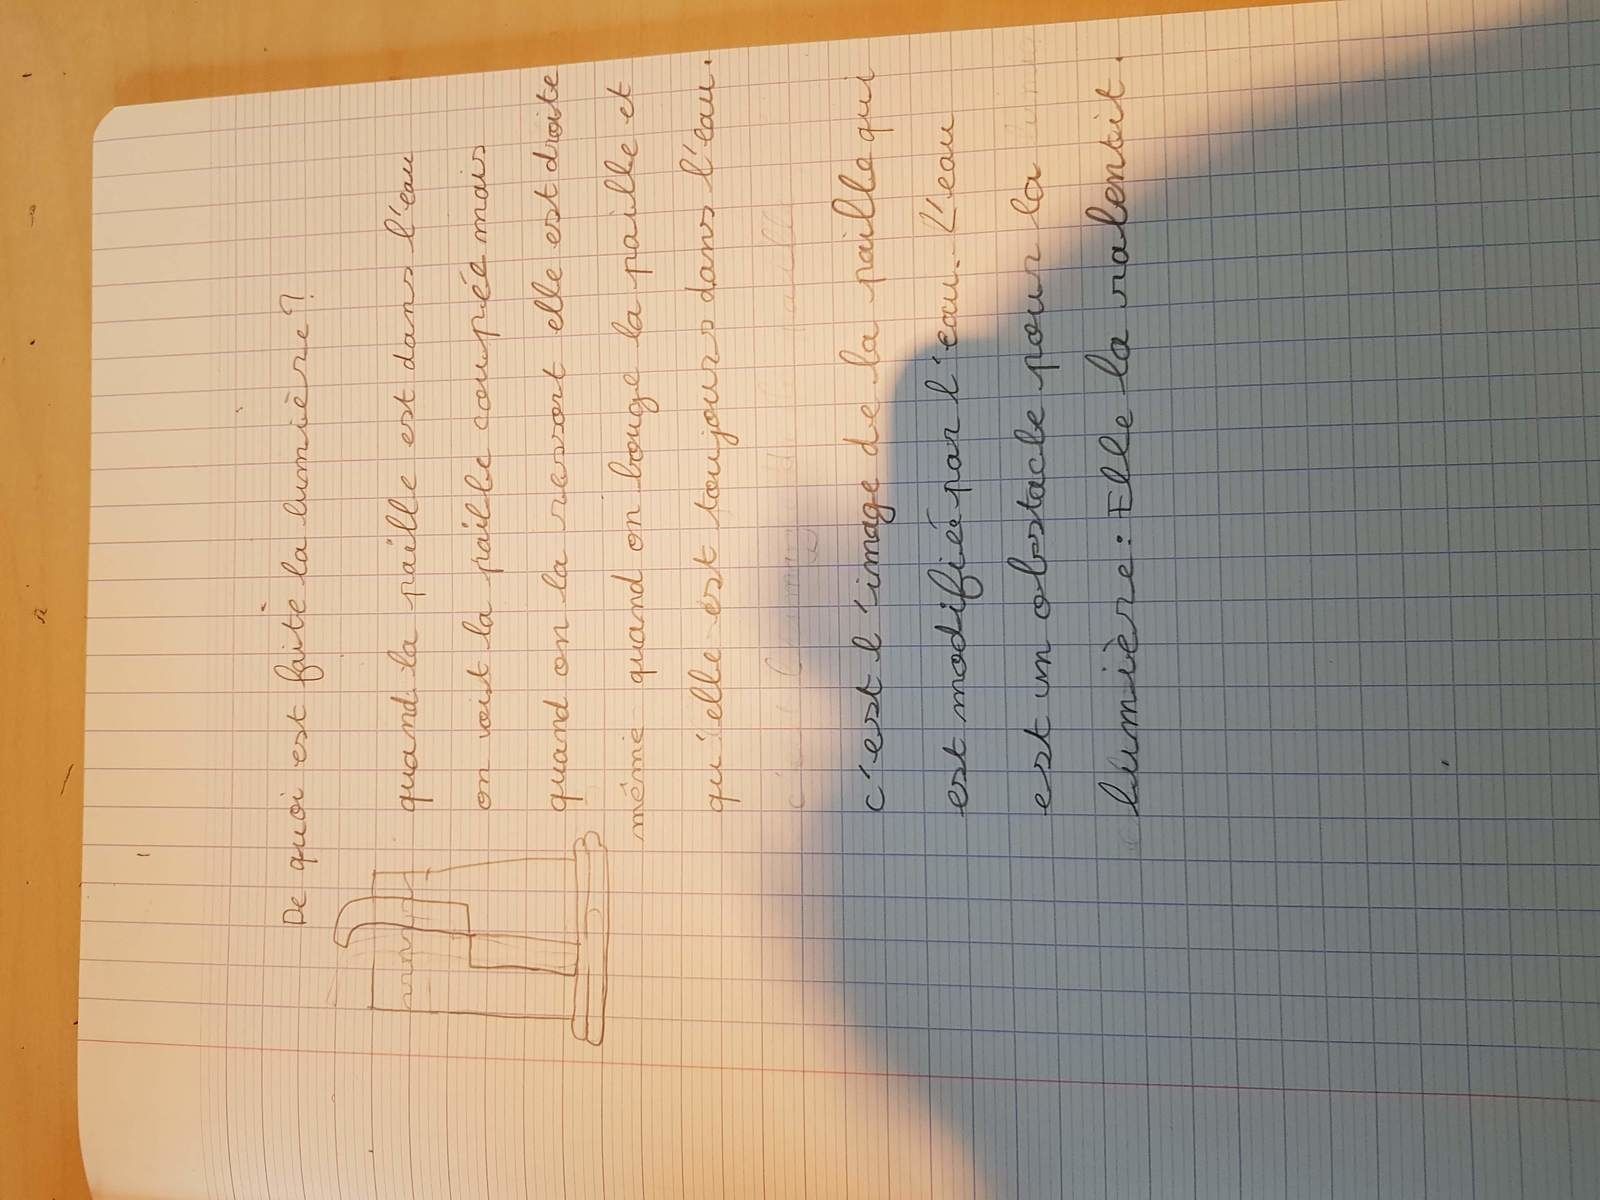 De quoi est faite la lumière?
quand la paille est dans l'eau
on voit la paille coupée mais
quand on la resort elle est droite
même quand on bouge la paille et
qu'elle est toujours dans l'eau.
c'est l'image de la paille qui
est modifiée par l'eau. L'eau
est un obstacle pour la
lumière: Elle la ralentit.